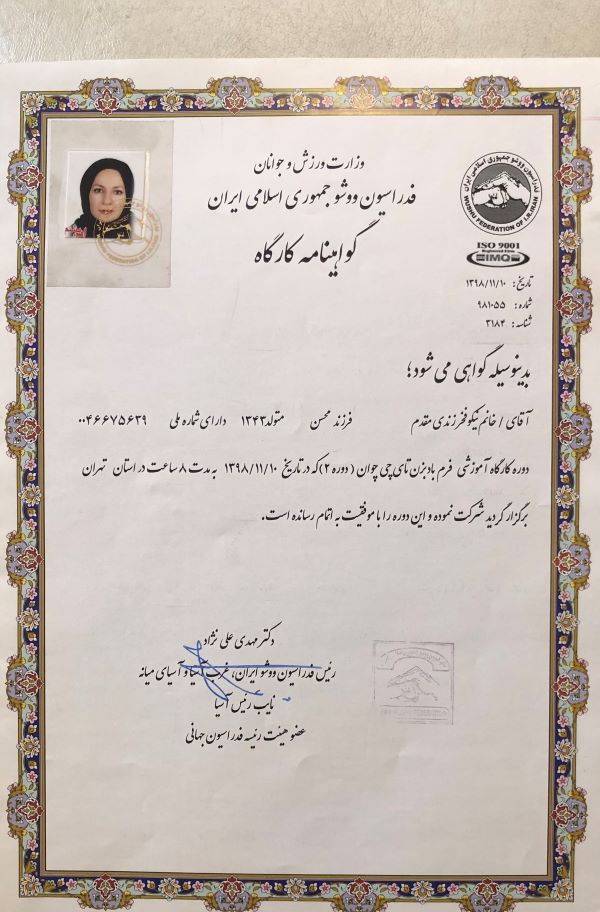 وزارت ورزش و جوانان
فدراسیون ووشو جمهوری اسلامی ایران
گواهینامه کارگاه
فدراسیون ووشو جمهوری اسلامی ایران
WUSHU FEDERATION OF I.R.IRAN
ISO 9001
IMQ
تاریخ: ۱۳۹۸/۱۱/۱۰
شماره: ۹۸۱۰۵۵
شناسه: ۳۱۸۴
بدینوسیله گواهی می شود؛
آقای / خانم نیکو فخرزندی مقدم فرزند محسن متولد ۱۳۴۳ دارای شماره ملی ۰۰۴۶۶۷۵۶۳۹
دوره کارگاه آموزشی فرم بادبزن تای چی چوان ( دوره ۲) که در تاریخ ۱۳۹۸/۱۱/۱۰ به مدت ۸ ساعت در استان تهران
برگزار گردید شرکت نموده و این دوره را با موفقیت به اتمام رسانده است.
دکتر مهدی علی نژاد
رئیس فدراسیون ووشو ایران، غرب آسیا و آسیای میانه
نایب رئیس آسیا
عضو هیئت رئیسه فدراسیون جهانی